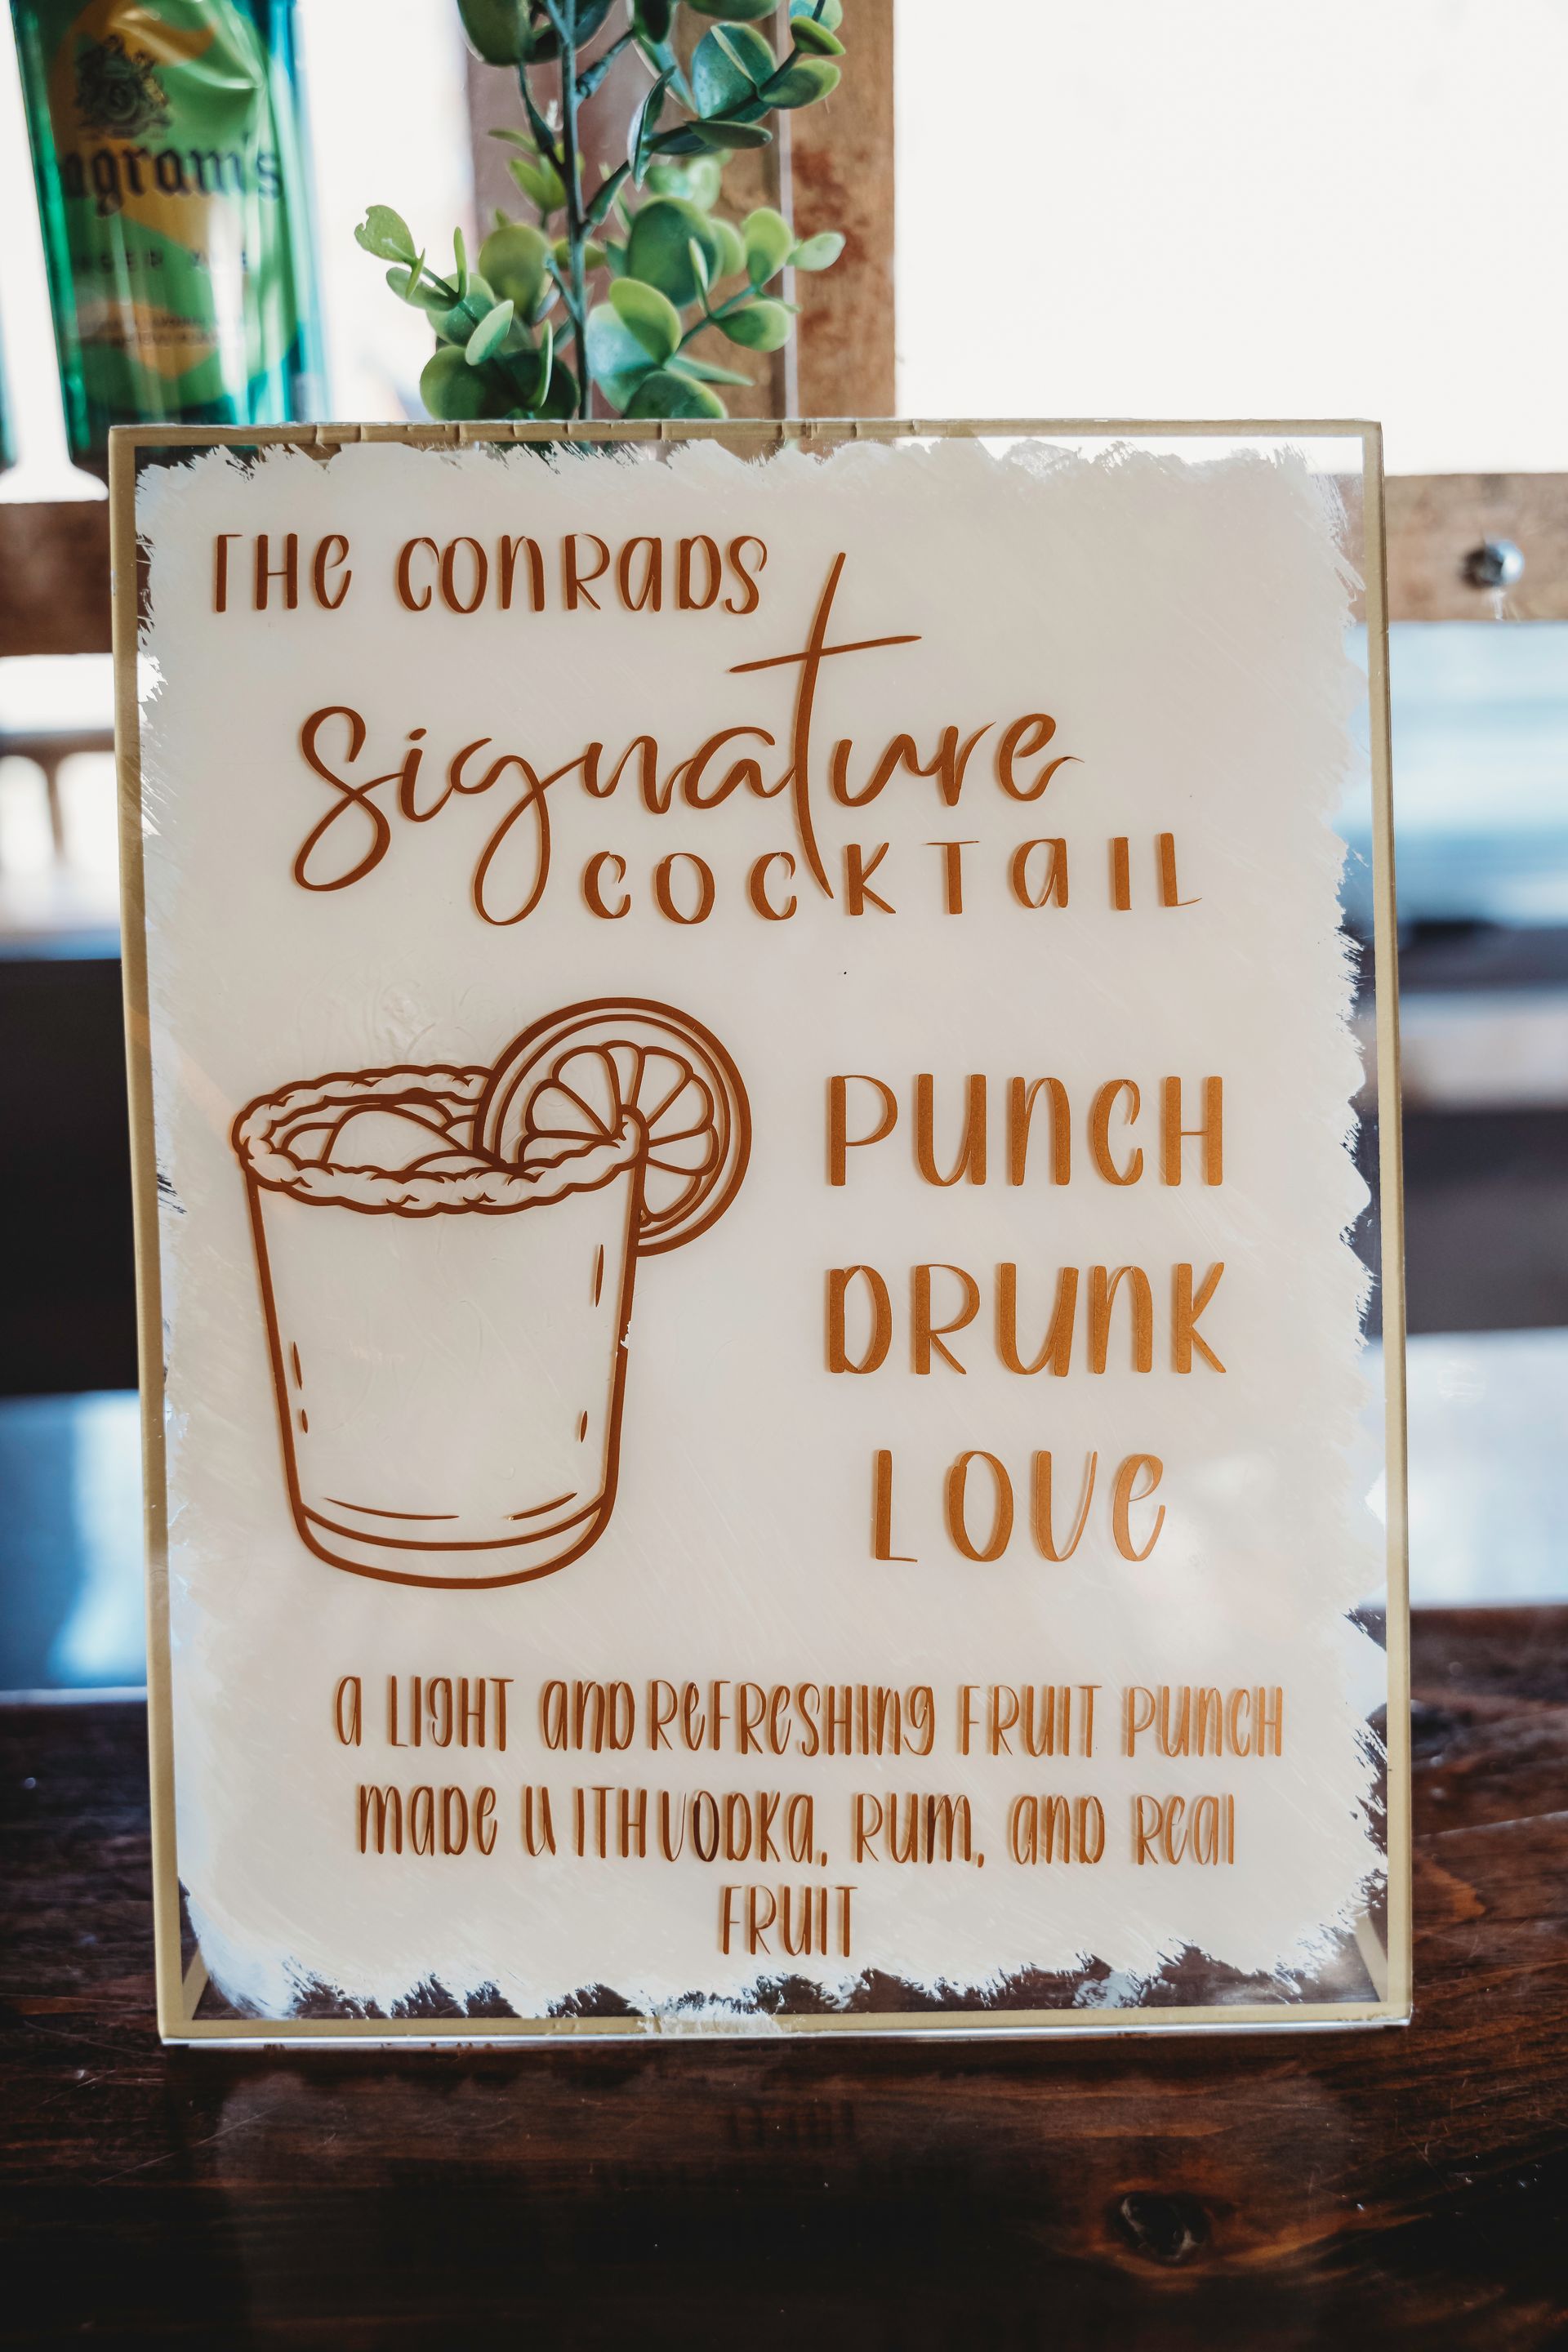 agram's
THE CONRADS
Signature
COCKTAIL
PUNCH
DRUNK
LOVE
A LIGHT AND REFRESHING FRUIT PUNCH
MADE WITH VODKA, RUM, AND REAL
FRUIT